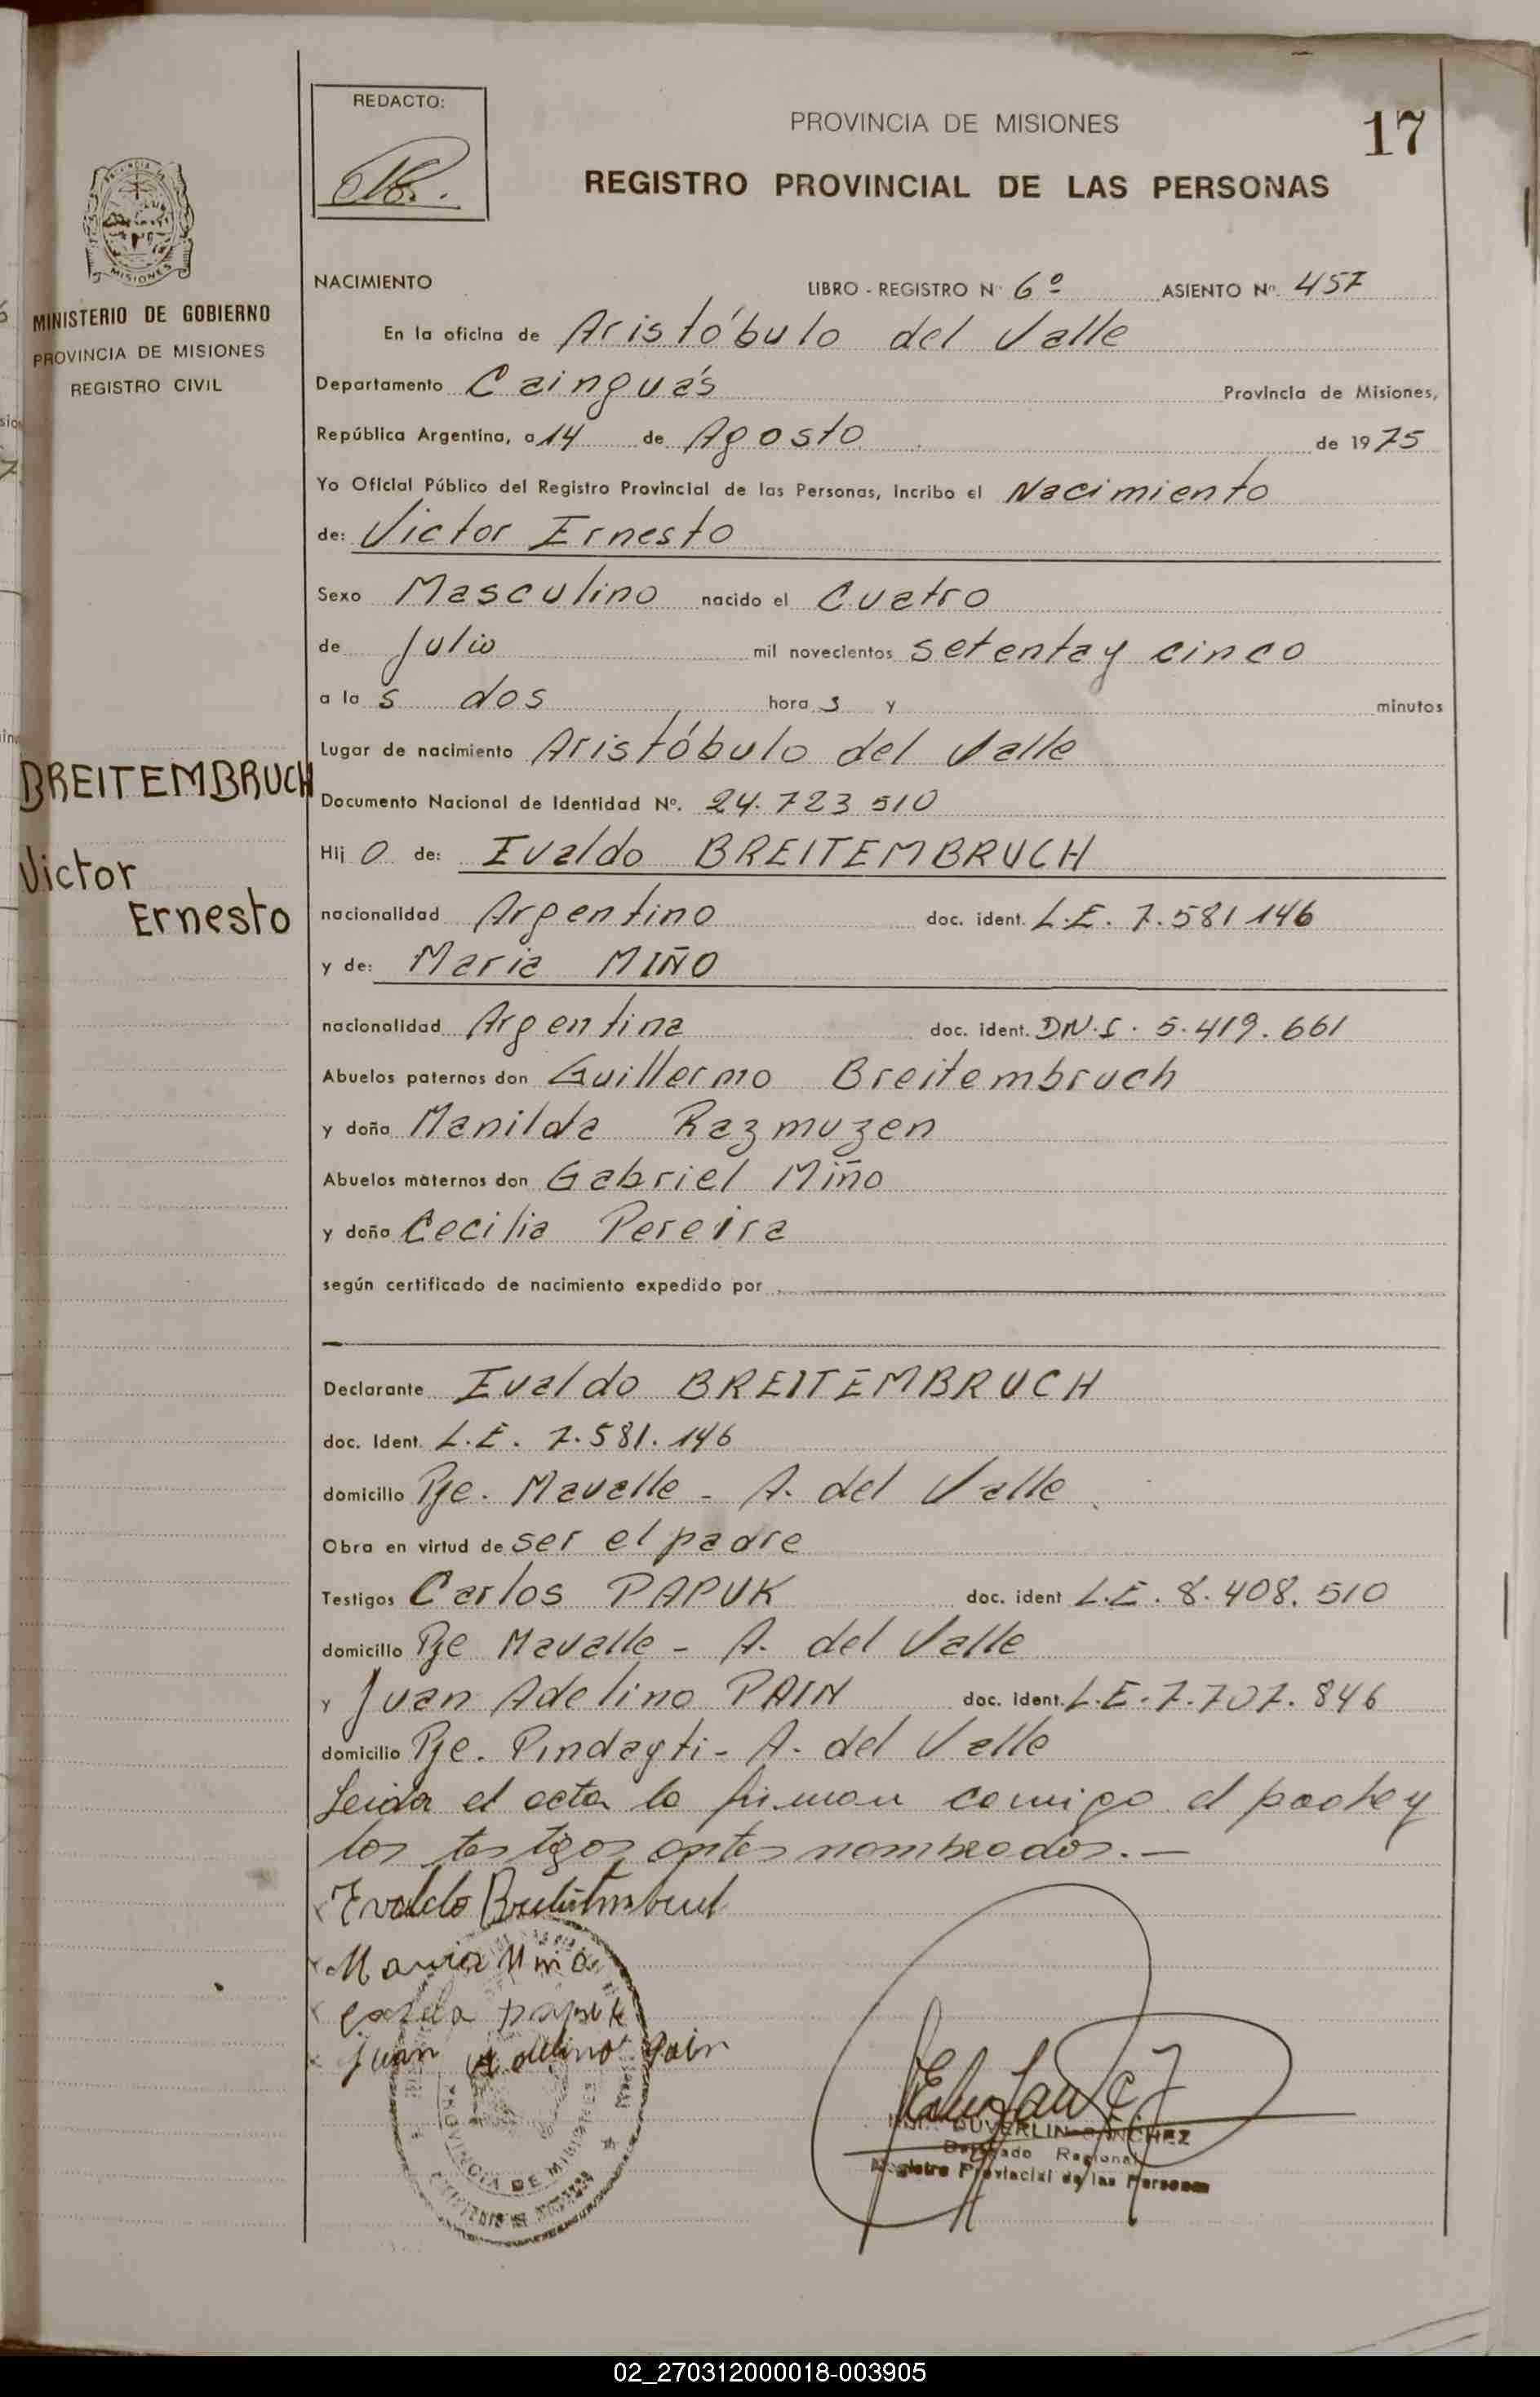 REDACTO:
PROVINCIA DE MISIONES
17
REGISTRO PROVINCIAL DE LAS PERSONAS
MISIONES
MINISTERIO DE GOBIERNO
PROVINCIA DE MISIONES
REGISTRO CIVIL
NACIMIENTO LIBRO - REGISTRO Nº 6º ASIENTO Nº. 457
En la oficina de Aristóbulo del Valle
Departamento Cainguás Provincia de Misiones,
República Argentina, a 14 de Agosto de 1975
Yo Oficial Público del Registro Provincial de las Personas, incribo el Nacimiento
de: Victor Ernesto
Sexo Masculino nacido el Cuatro
de Julio mil novecientos setenta y cinco
a las dos horas y minutos
Lugar de nacimiento Aristóbulo del Valle
BREITEMBRUCH
Victor
Ernesto
Documento Nacional de Identidad Nº. 24.723 510
Hijo de: Ivaldo BREITEMBRUCH
nacionalidad Argentino doc. ident. L.E. 7.581 146
y de: Maria MIÑO
nacionalidad Argentina doc. ident. DN.I. 5.419.661
Abuelos paternos don Guillermo Breitembruch
y doña Manilda Razmuzen
Abuelos maternos don Gabriel Miño
y doña Cecilia Pereira
según certificado de nacimiento expedido por
Declarante Ivaldo BREITEMBRUCH
doc. Ident. L.E. 7.581.146
domicilio Pje. Mavalle - A. del Valle
Obra en virtud de ser el padre
Testigos Carlos PAPUK doc. ident L.E. 8.408.510
domicilio Pje Mavalle - A. del Valle
y Juan Adelino PAIN doc. ident. L.E. 7.707.846
domicilio Pje. Pindayti - A. del Valle
Leida el acta la firman comigo el padre y
los testigos antes nombrados.-
Ivaldo
Maria Miño
papuk
Juan Adelino Pain
PROVINCIA DE MISIONES
DUVERLIN SANCHEZ
Delegado Regional
Registro Provincial de las Personas
02_270312000018-003905